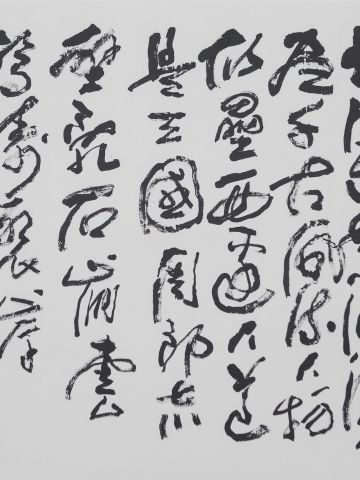 盡千古風流人物
故壘西邊人道
是三國周郎赤
壁亂石崩雲
驚濤裂岸